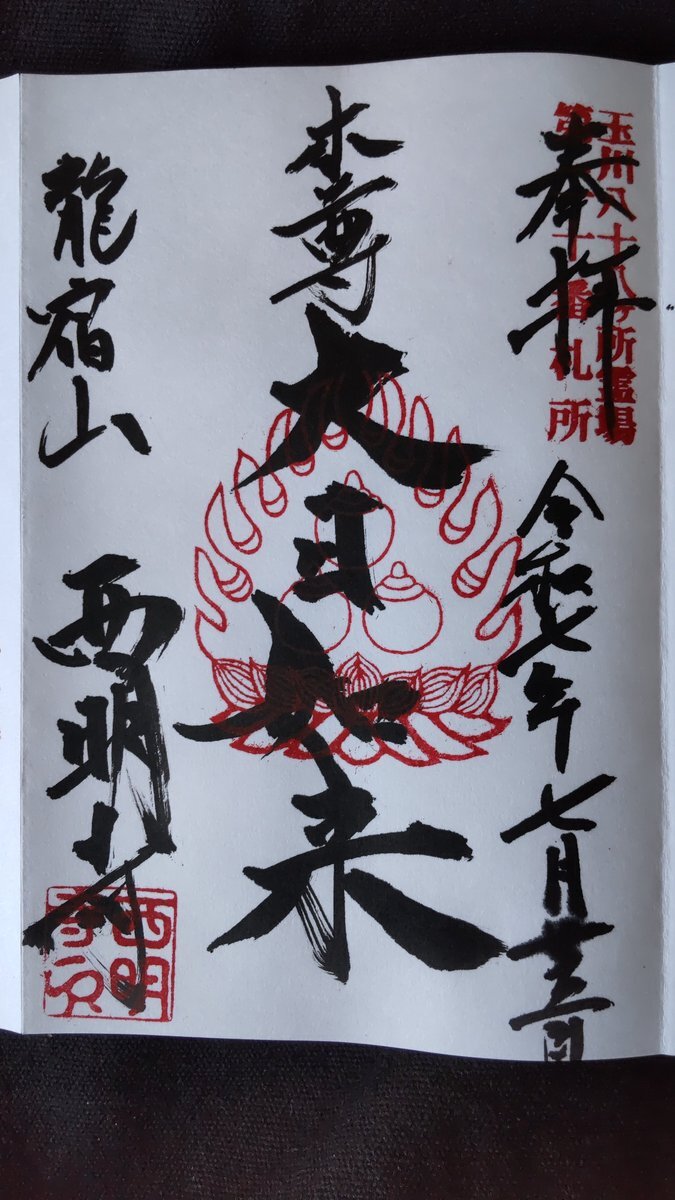 玉川八十八ヶ所霊場
十番札所
奉拝
令和七年七月
本尊
大日如来
龍宿山
西明寺
西明
寺印